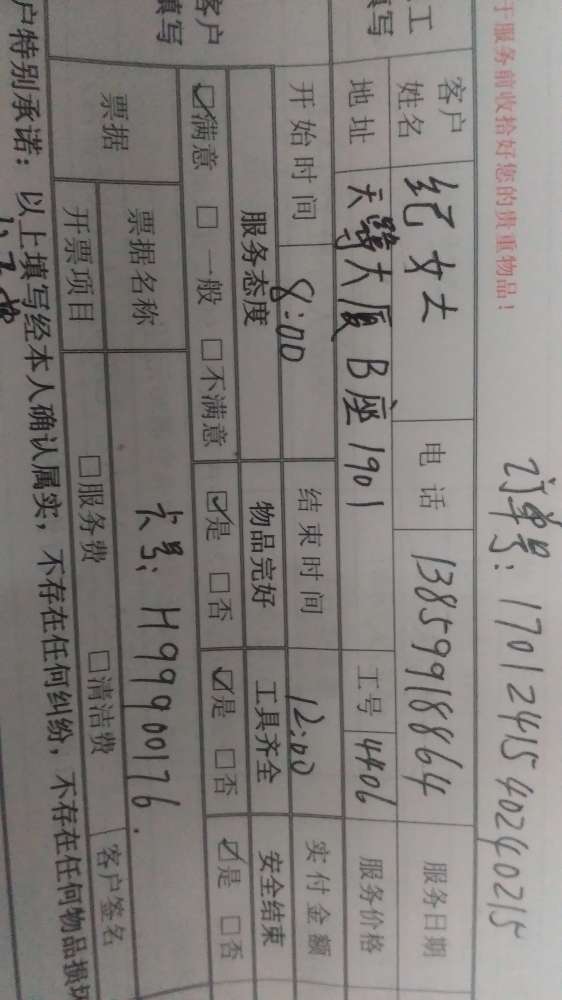 订单号：1701241540240215
于服务前收拾好您的贵重物品！
客户姓名 纪女士 电话 13859918864 服务日期
地址 天鹭大厦B座1901 工号 4406 服务价格
开始时间 8:00 结束时间 12:00 实付金额
服务态度 物品完好 工具齐全 安全结束
☑满意 □一般 □不满意 ☑是 □否 ☑是 □否 ☑是 □否
客户
填写
票据 票据名称 卡号：H99900176.
开票项目 □服务费 □清洁费 客户签名
户特别承诺：以上填写经本人确认属实，不存在任何纠纷，不存在任何物品损